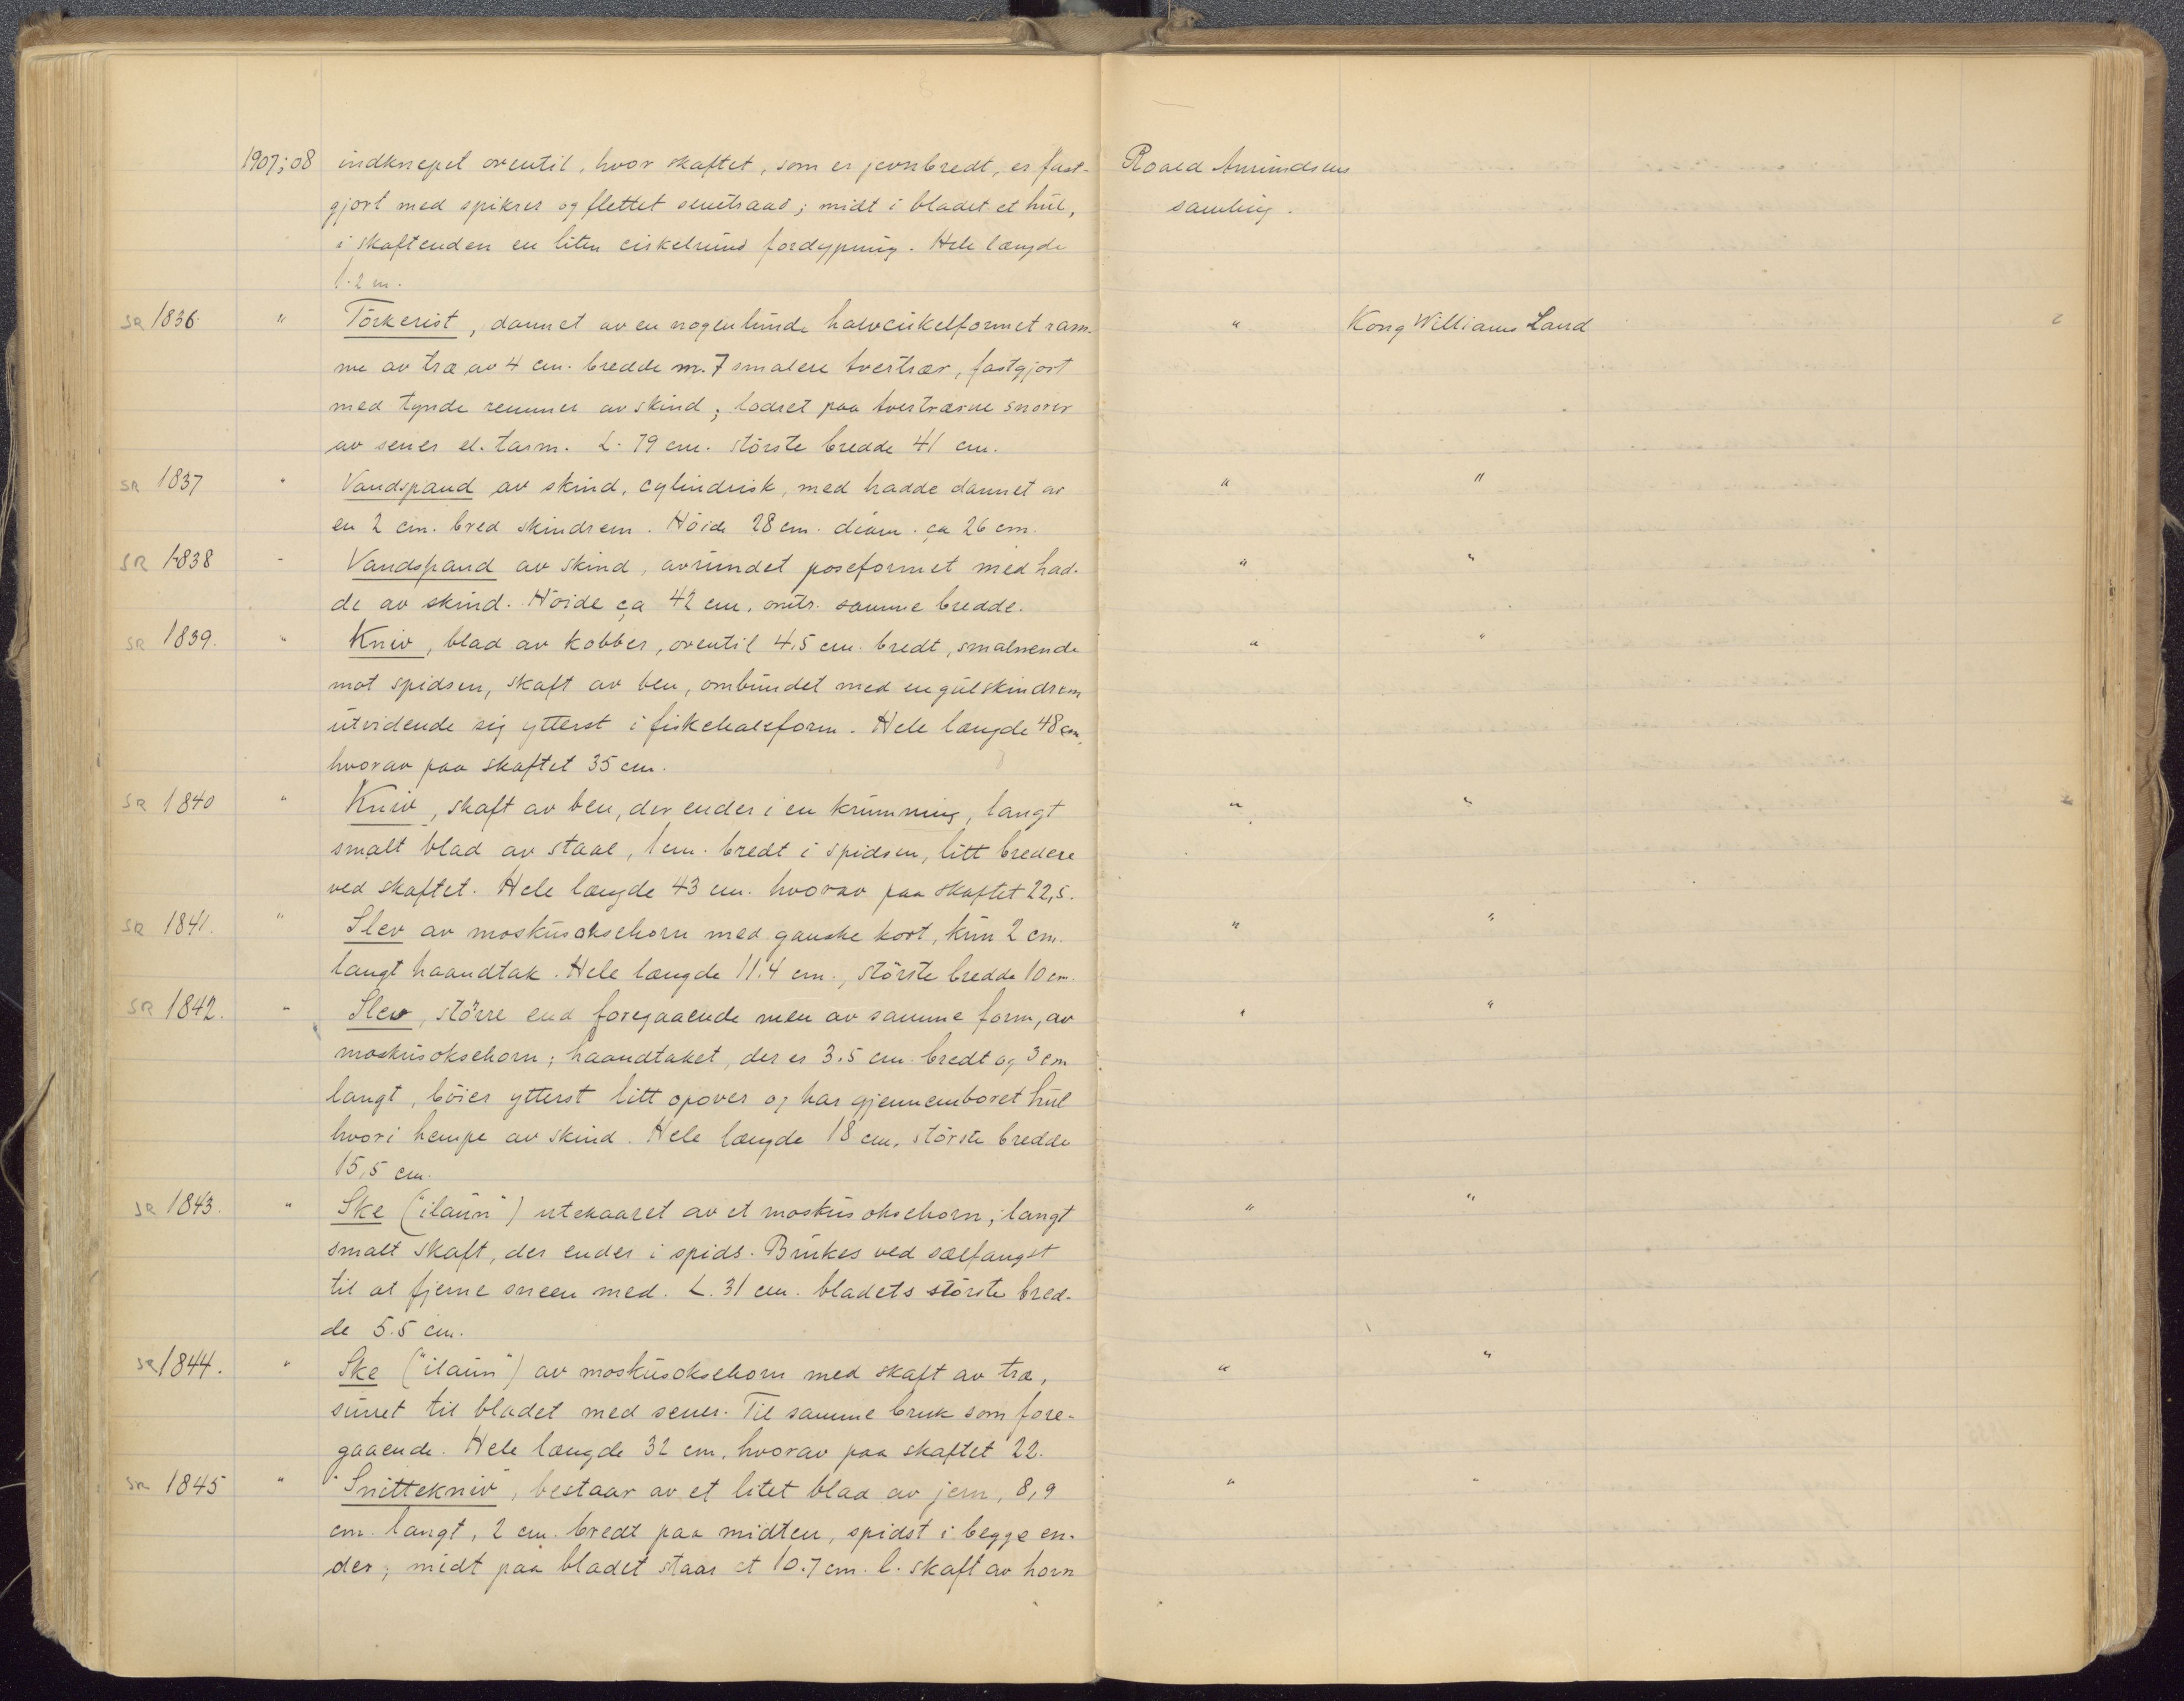 1907;08 indknepet oventil, hvor skaftet, som er jevnbredt, er fast- Roald Amundsens
gjort med spikrer og flettet senetraad; midt i bladet et hul, samling.
i skaftenden en liten cirkelrund fordypning. Hele længde
1.2 m.
SR 1836. " Törkerist, dannet av en nogenlunde halvcirkelformet ram- " Kong Williams Land
me av træ av 4 cm. bredde m. 7 smalere tvertrær, fastgjort
med tynde remmer av skind; lodret paa tvertrærne snorer
av sener el. tarm. L. 79 cm. störste bredde 41 cm.
SR 1837 " Vandspand av skind, cylindrisk, med hadde dannet av " "
en 2 cm. bred skindrem. Höide 28 cm. diam. ca 26 cm.
SR 1838 " Vandspand av skind, avrundet poseformet med had- " "
de av skind. Höide ca 42 cm, omtr. samme bredde.
SR 1839. " Kniv, blad av kobber, oventil 4,5 cm. bredt, smalnende " "
mot spidsen, skaft av ben, ombundet med en gul skindrem
utvidende sig ytterst i fiskehaleform. Hele længde 48 cm,
hvorav paa skaftet 35 cm.
SR 1840 " Kniv, skaft av ben, der ender i en krumning, langt " "
smalt blad av staal, 1 cm. bredt i spidsen, litt bredere
ved skaftet. Hele længde 43 cm. hvorav paa skaftet 22,5.
SR 1841. " Slev av moskusoksehorn med ganske kort, kun 2 cm. " "
langt haandtak. Hele længde 11.4 cm., störste bredde 10 cm.
SR 1842. " Slev, större end foregaaende men av samme form, av " "
moskusoksehorn; haandtaket, der er 3.5 cm. bredt og 3 cm
langt, böier ytterst litt opover og har gjennemboret hul
hvori hempe av skind. Hele længde 18 cm, störste bredde
15,5 cm.
SR 1843. " Ske ("ilaun") utskaaret av et moskusoksehorn; langt " "
smalt skaft, der ender i spids. Brukes ved sælfangst
til at fjerne sneen med. L. 31 cm. bladets störste bred-
de 5.5 cm.
SR 1844. " Ske ("ilaun") av moskusoksehorn med skaft av træ, " "
surret til bladet med sener. Til samme bruk som fore-
gaaende. Hele længde 32 cm, hvorav paa skaftet 22.
SR 1845 " "Snittekniv", bestaar av et litet blad av jern, 8,9 " "
cm. langt, 2 cm. bredt paa midten, spidst i begge en-
der; midt paa bladet staar et 10.7 cm. l. skaft av horn